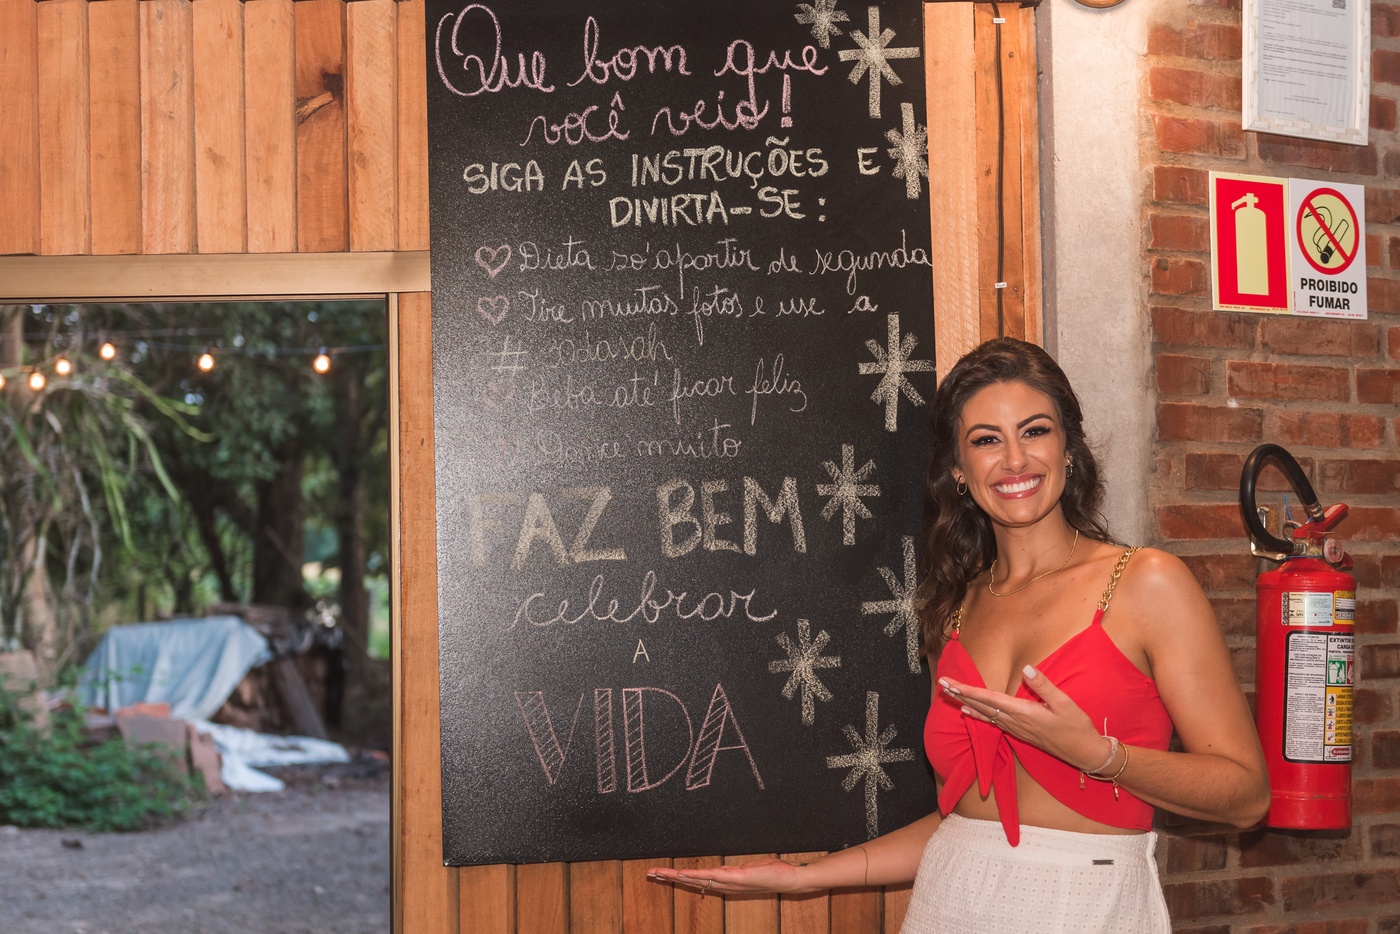 Que bom que
você veio!
SIGA AS INSTRUÇÕES E
DIVIRTA-SE:
Dieta só apartir de segunda
Tire muitas fotos e use a
#30dasah
Beba até ficar feliz
Dance muito
FAZ BEM
celebrar
A
VIDA
PROIBIDO
FUMAR
EXTINTOR
CARGA